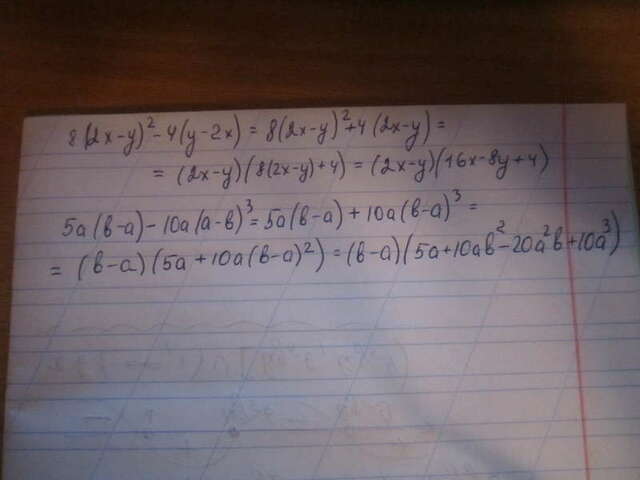 8(2x-y)²-4(y-2x)=8(2x-y)²+4(2x-y)=
=(2x-y)(8(2x-y)+4)=(2x-y)(16x-8y+4)
5a(в-a)-10a(a-в)³=5a(в-a)+10a(в-a)³=
=(в-a)(5a+10a(в-a)²)=(в-a)(5a+10aв²-20a²в+10a³)